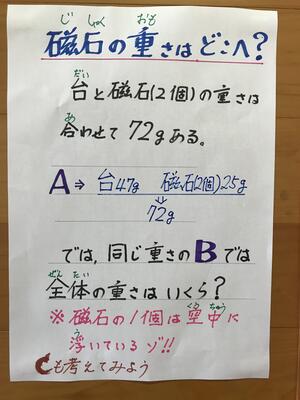 じ しゃく おも
磁石の重さは、どこへ?
だい
台と磁石(2個)の重さは
あ
合わせて72gある。
A⇒ 台47g 磁石(2個)25g
⇓
72g
では、同じ重さのBでは
ぜんたい
全体の重さはいくら?
くうちゅう
※磁石の1個は空中に
う
浮いているゾ!!
Cも考えてみよう